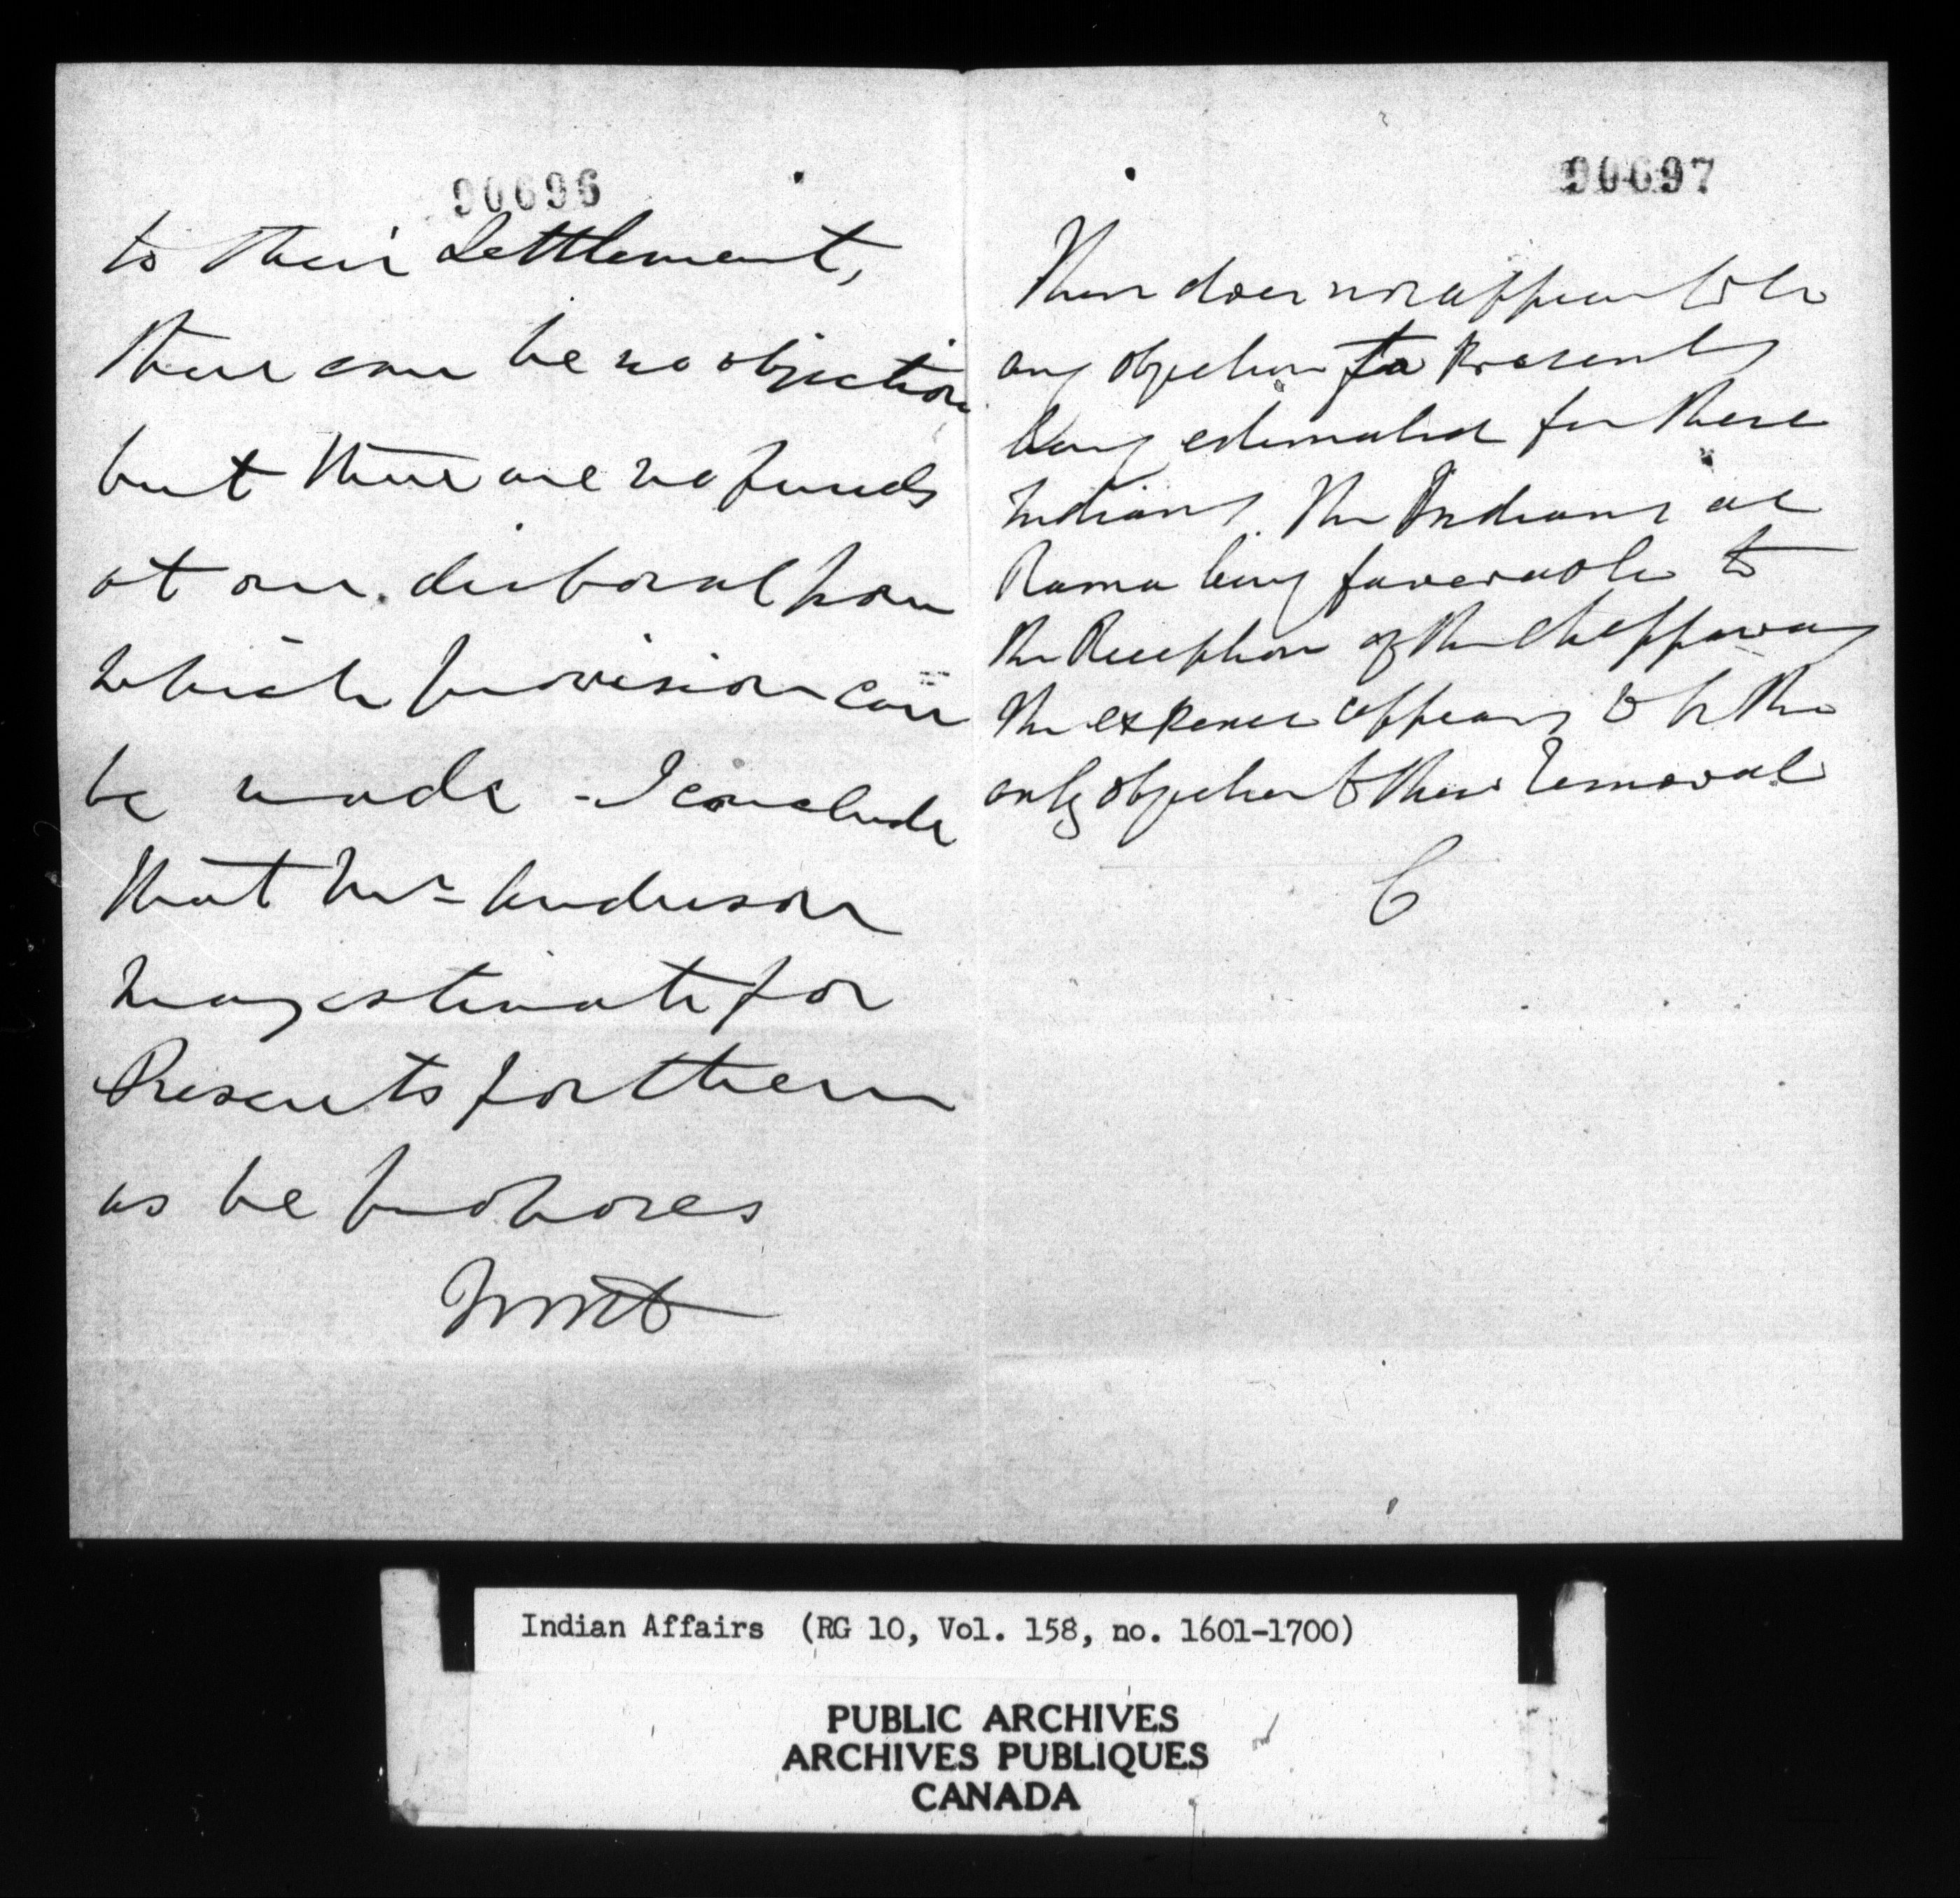 90696
to their Settlement,
there can be no objection
but there are no funds
at our disposal from
which provision can
be made - I conclude
that Mr Anderson
may estimate for
Presents for them
as he proposes
90697
There does not appear to be
any objection to Presents
being estimated for these
Indians. The Indians at
Rama being favorable to
the Reception of the Chippaways
the expense appears to be the
only objection to their removal
C
Indian Affairs (RG 10, Vol. 158, no. 1601-1700)
PUBLIC ARCHIVES
ARCHIVES PUBLIQUES
CANADA